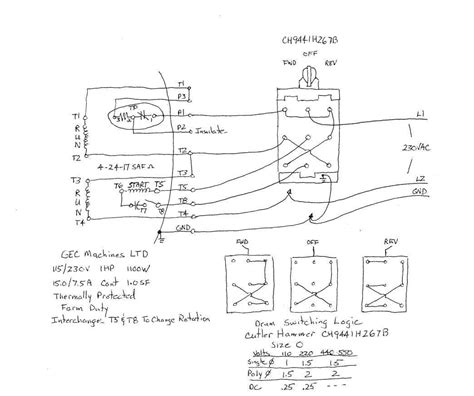 CH9441H267B
OFF
FWD REV
T1
P3
TP
P1
L1
T1
P2 Insulate
RUN
T2
T2
230VAC
4-24-17 SAF
T3
T3
L2
T6 START T5
T5
GND
RUN
T8
T7 T8
T4
T4
GND
FWD OFF REV
GEC Machines LTD
115/230V 1HP 1100W
15.0/7.5A Cont 1.0SF
Thermally Protected
Farm Duty
Interchange T5 & T8 To Change Rotation
Drum Switching Logic
Cutler Hammer CH9441H267B
Size 0
Volts 110 220 440-550
Single Φ 1 1.5 1.5
Poly Φ 1.5 2 2
DC .25 .25 ---